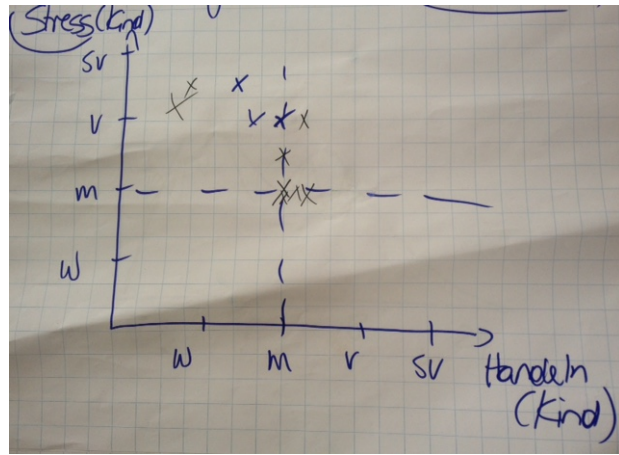 Stress (Kind)
sv
v
m
w
w m v sv
Handeln
(Kind)